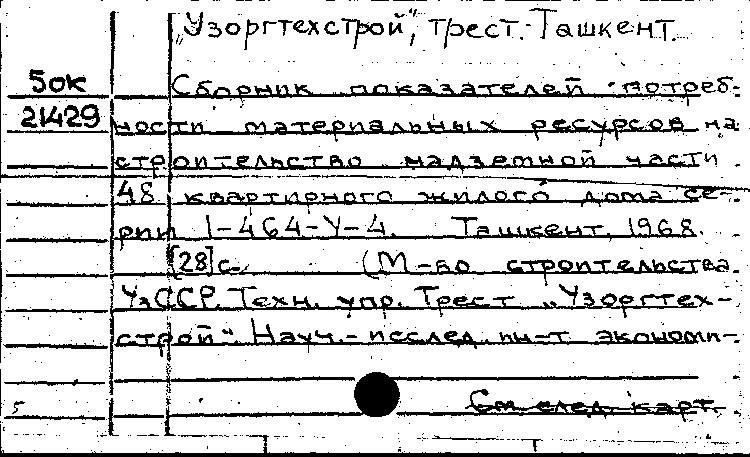 „Узоргтехстрой", трест. Ташкент.
5ок
Сборник показателей потреб-
21429
ности материальных ресурсов на
строительство надземной части
48 квартирного жилого дома се-
рии 1-464-У-4. Ташкент, 1968.
[28]с. (М-во строительства
УзССР. Техн. упр. Трест „Узоргтех-
строй". Науч.-исслед. ин-т экономи-
5
См след. карт.